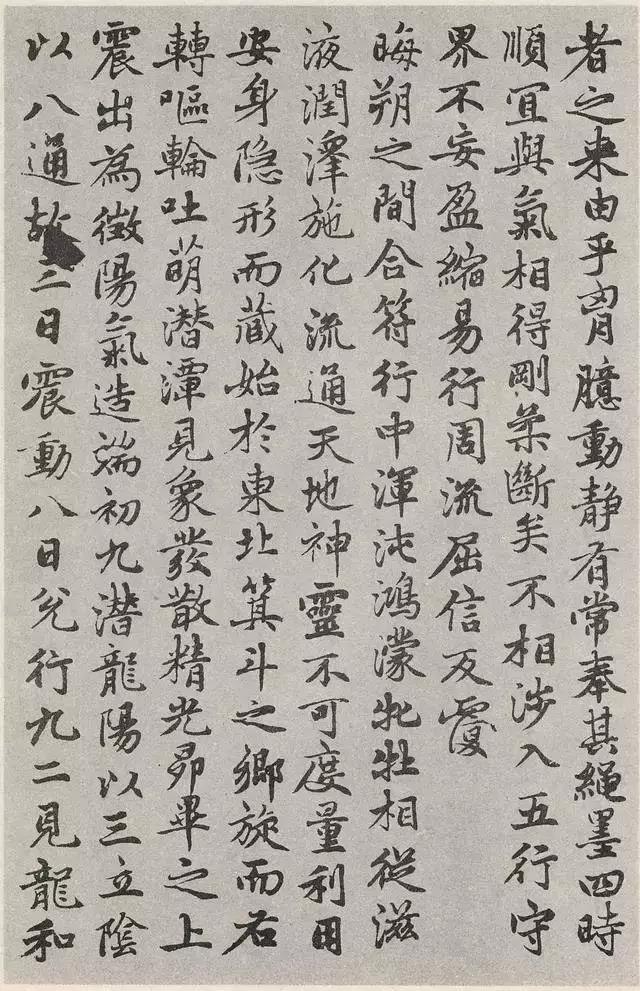 者之来由乎胷臆動静有常奉其繩墨四時
順冝與氣相得剛柔斷矣不相涉入五行守
界不妄盈縮易行周流屈信反覆
晦朔之間合符行中渾沌鴻濛牝牡相從滋
液潤澤施化流通天地神靈不可度量利用
安身隐形而藏始於東北箕斗之鄉旋而右
轉嘔輪吐萌潜潭見象發散精光昴畢之上
震出為徵陽氣造端初九潜龍陽以三立陰
以八通故二日震動八日兌行九二見龍和